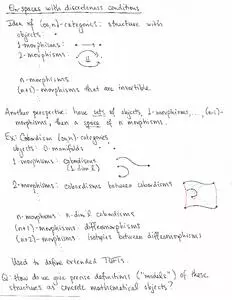 Θn-spaces with discreteness conditions
Idea of (∞,n)-categories: structure with
objects: •
1-morphisms: • → •
2-morphisms:
n-morphisms
(n+1)-morphisms that are invertible.
Another perspective: have sets of objects, 1-morphisms, ..., (n-1)-
morphisms, then a space of n morphisms.
Ex: Cobordism (∞,n)-categories
objects: 0-manifolds
1-morphisms: cobordisms
(1 dim'l)
2-morphisms: cobordisms between cobordisms
n-morphisms: n-dim'l cobordisms
(n+1)-morphisms: diffeomorphisms
(n+2)-morphisms: isotopies between diffeomorphisms
Used to define extended TQFTs.
Q: How do we give precise definitions ("models") of these
structures as concrete mathematical objects?